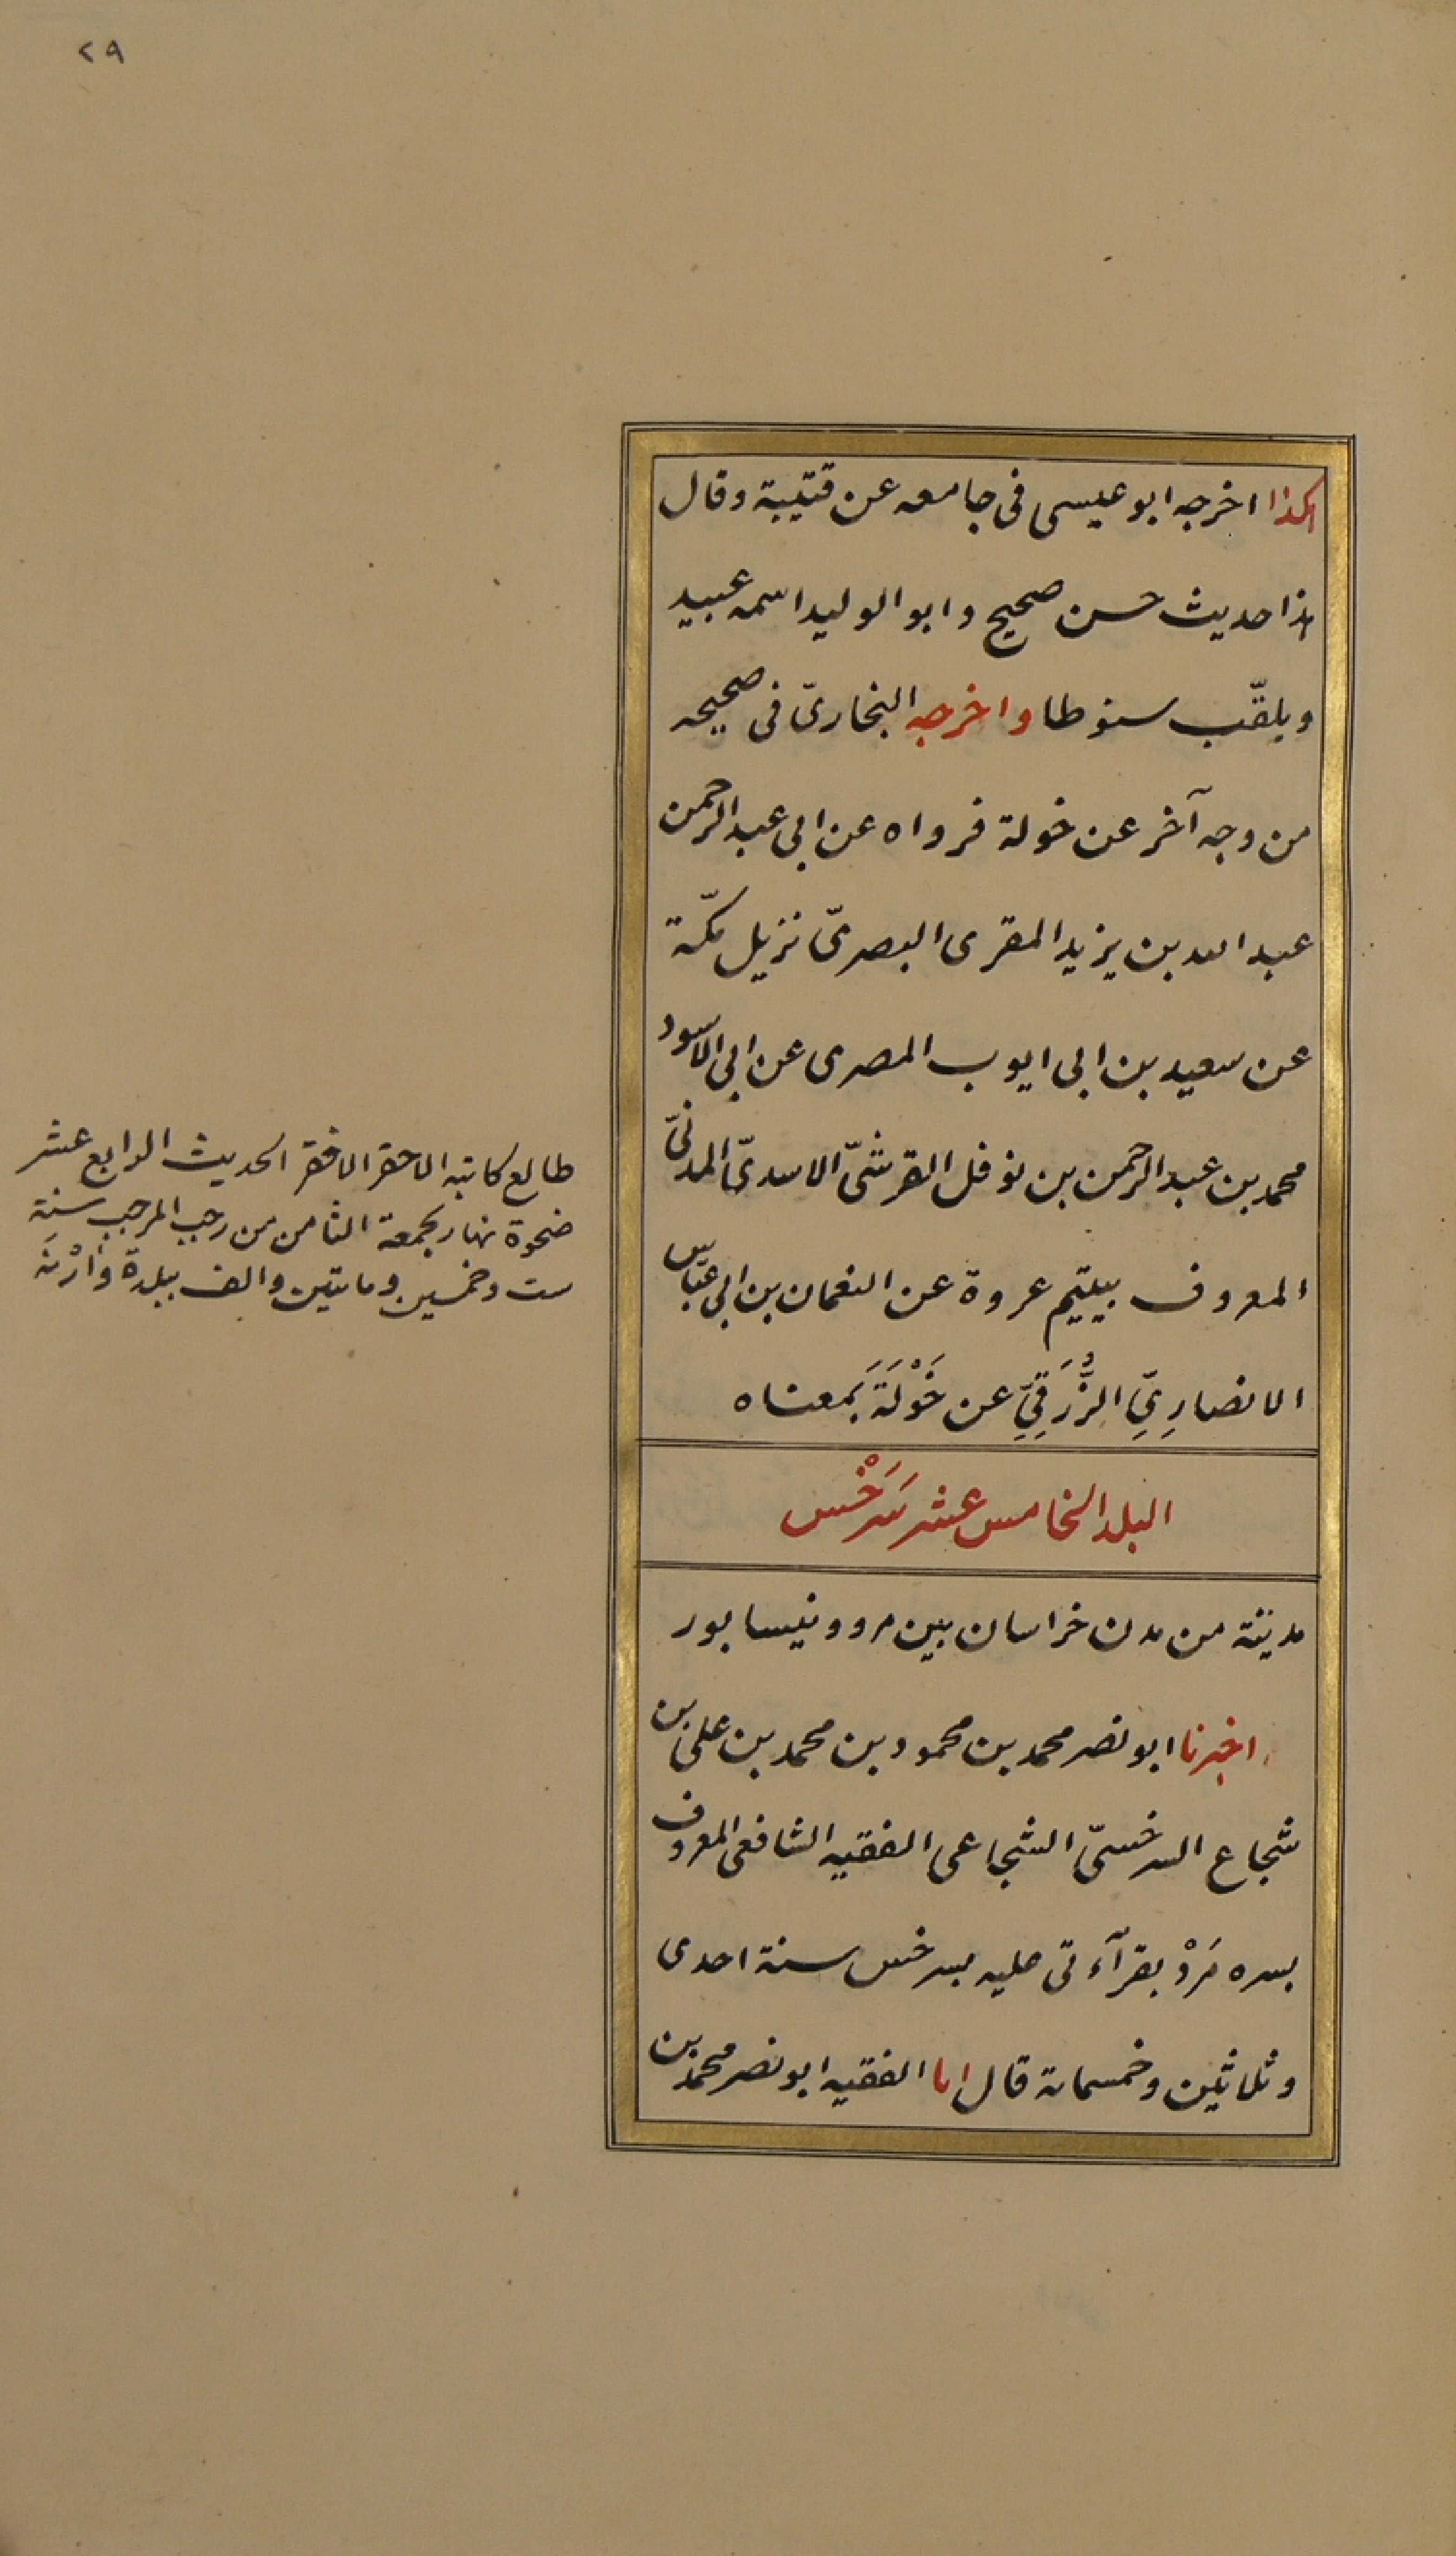 ٢٩
هكذا اخرجه ابو عيسى فى جامعه عن قتيبة وقال
هذا حديث حسن صحيح وابو الوليد اسمه عبيد
ويلقّب سنوطا واخرجه البخارىّ فى صحيحه
من وجه آخر عن خولة فرواه عن ابى عبد الرحمن
عبد الله بن يزيد المقرى البصرىّ نزيل مكّة
عن سعيد بن ابى ايوب المصرى عن ابى الاسود
محمد بن عبد الرحمن بن نوفل القرشىّ الاسدىّ المدنىّ
المعروف بيتيم عروة عن النعمان بن ابى عيّاش
الانصارِىِّ الزُّرَقِىِّ عن خَوْلَةَ بمعناه
البلد الخامس عشر سَرَخْس
مدينة من مدن خراسان بين مرو ونيسابور
اخبرنا ابو نصر محمد بن محمود بن محمد بن على بن
شجاع السرخسىّ الشجاعى الفقيه الشافعى المعروف
بسره مَرْدْ بقرآءتى عليه بسرخس سنة احدى
وثلاثين وخمسماىة قال انا الفقيه ابو نصر محمد بن
طالع كاتبه الاحقر الافقر الحديث الرابع عشر
ضحوة نهار الجمعة الثامن من رجب المرجب سنة
ست وخمسين ومايتين والف ببلدة